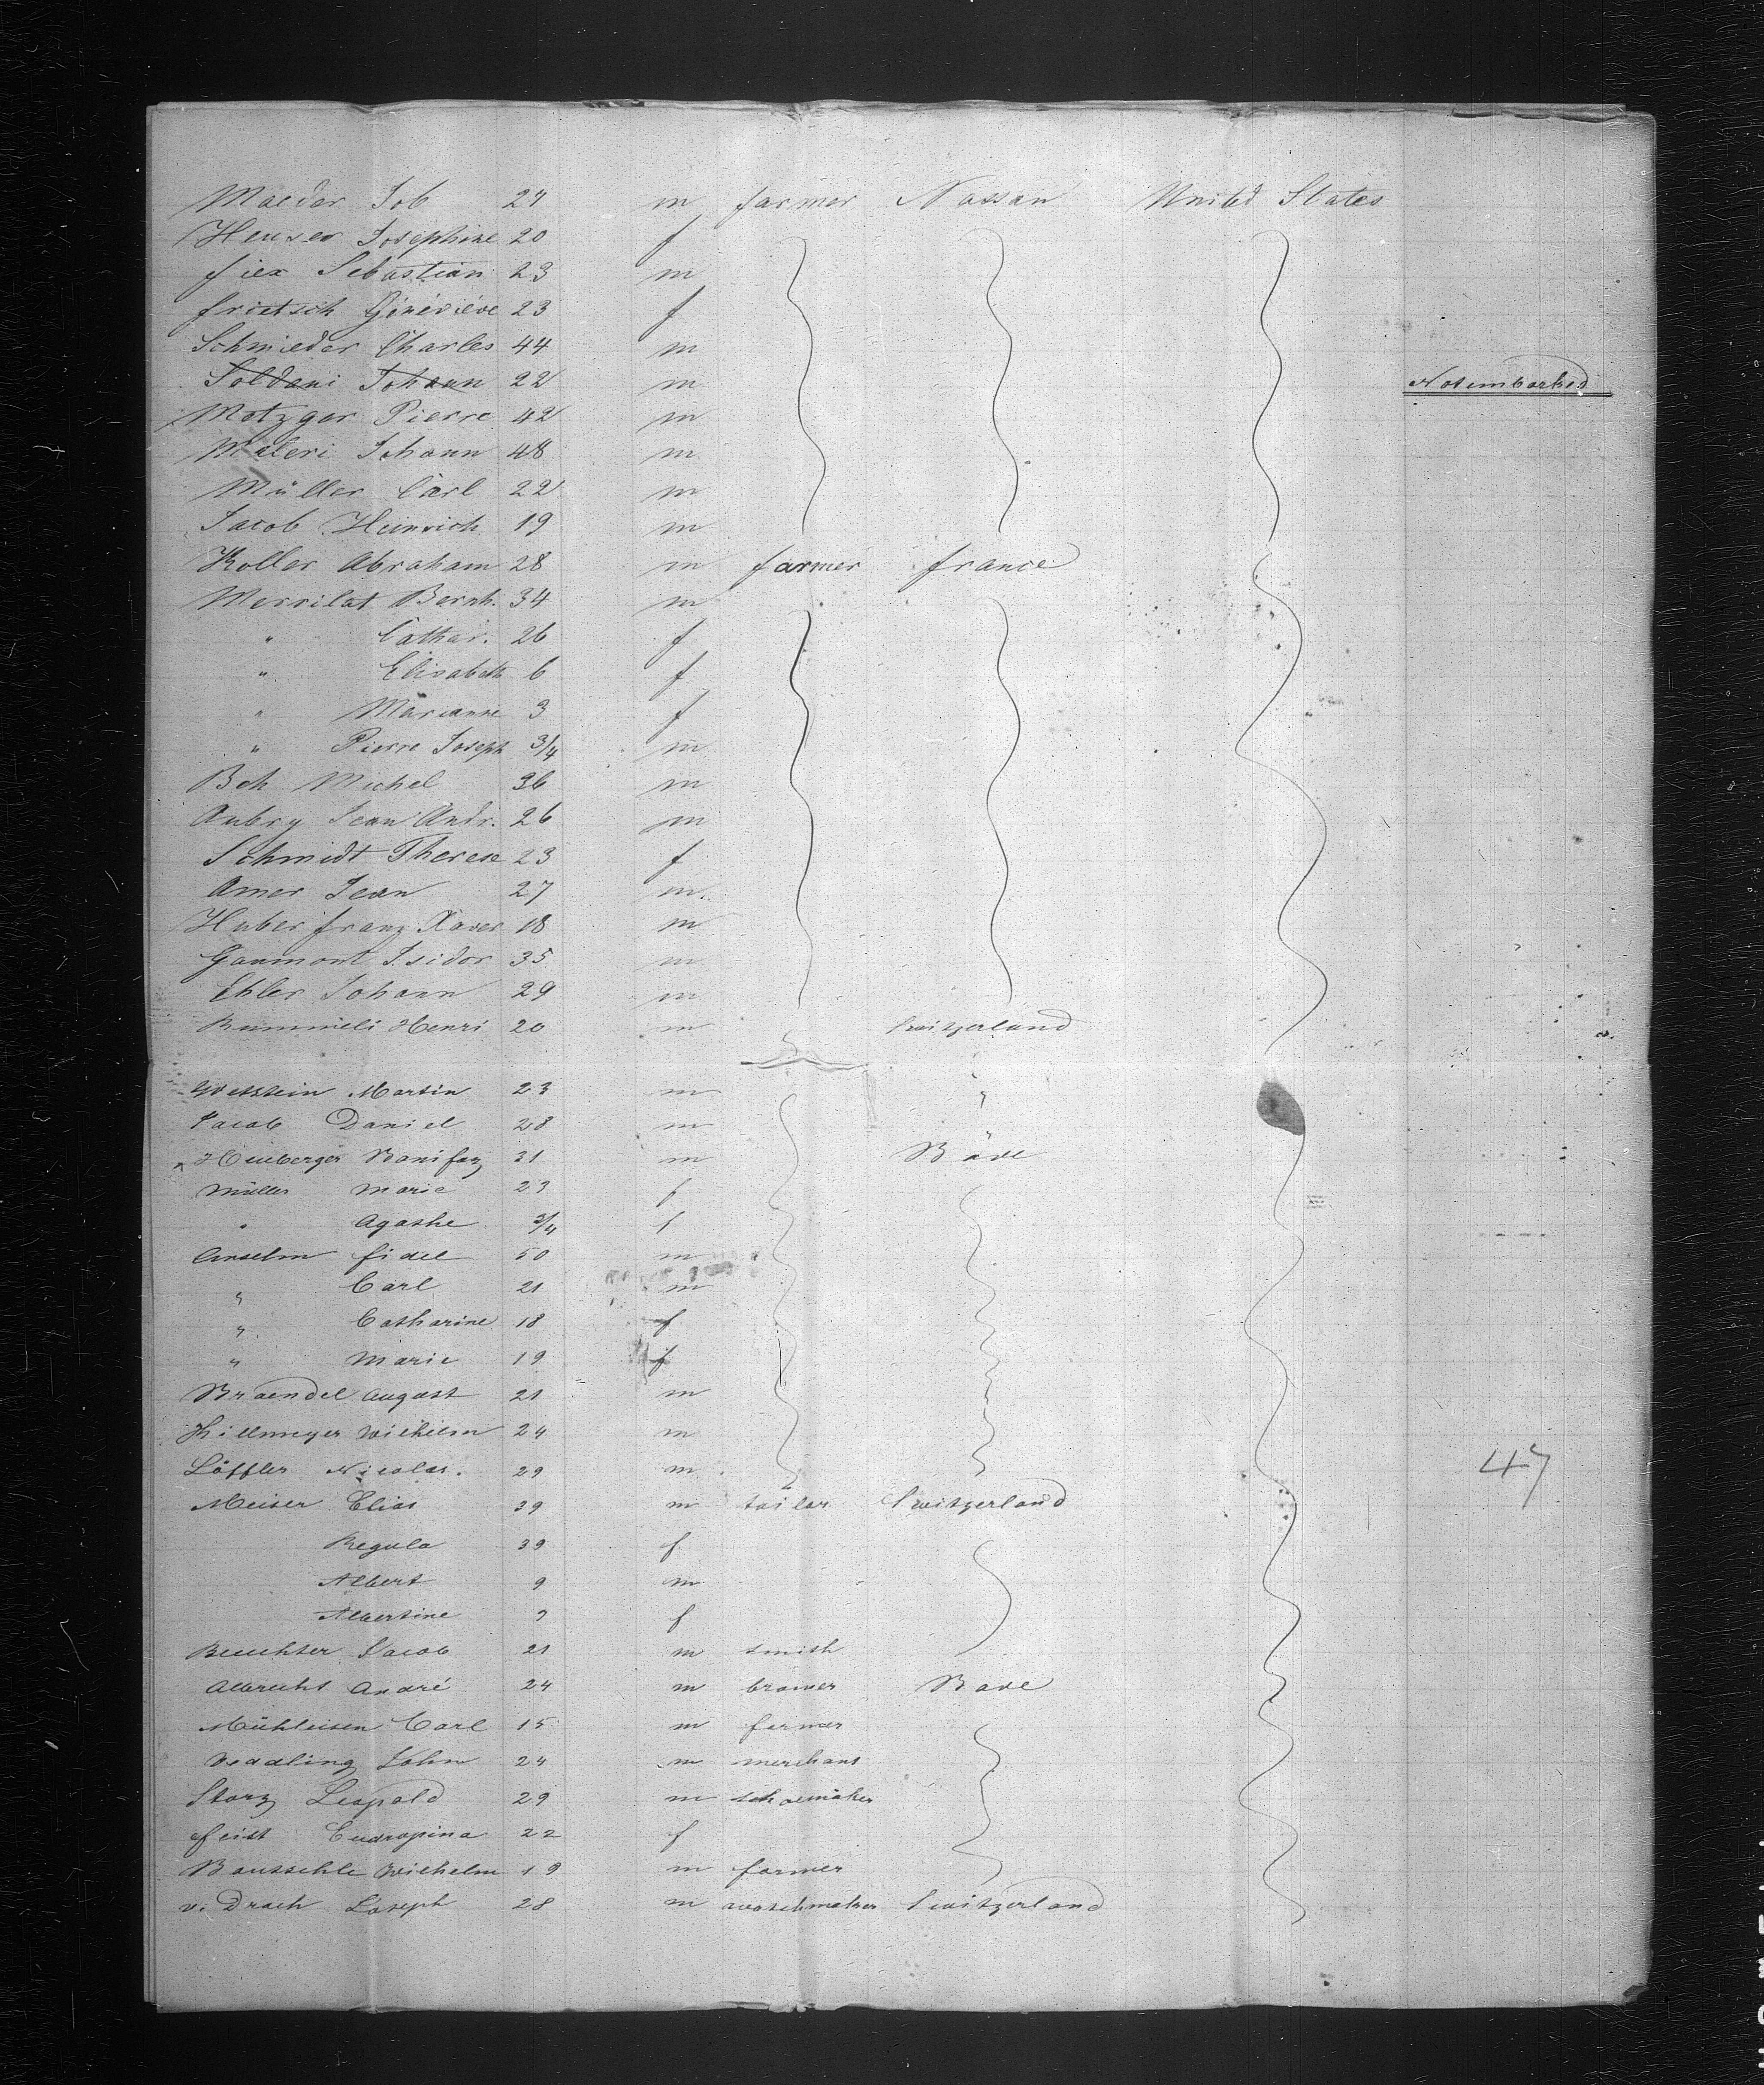 Maeder Job 24 m farmer Nassau United States
Heuser Josephine 20 f
fiex Sebastian 23 m
frietsch Généviéve 23 f
Schmieder Charles 44 m
Soldani Johann 22 m Not embarked
Metzger Pierre 42 m
Maleri Johann 48 m
Müller Carl 22 m
Jacob Heinrich 19 m
Koller Abraham 28 m farmer france
Merrilat Bernh. 34 m
" Cathar. 26 f
" Elisabeth 6 f
" Marianne 3 f
" Pierre Joseph 3/4 m
Boh Michel 36 m
Aubry Jean Andr. 26 m
Schmidt Therese 23 f
Amer Jean 27 m.
Huber franz Xaver 18 m
Gaumont Isidor 35 m
Ehler Johann 29 m
Rummeli Henri 20 m Switzerland
Wettstein Martin 23 m "
Jacob Daniel 28 m
Heuberger Bonifaz 31 m Bade
Müller Marie 23 f
" Agathe 3/4 f
Anselm fidel 50 m
" Carl 21 m
" Catharine 18 f
" Marie 19 f
Braendel August 21 m
Hillmeyer Wilhelm 24 m
Löffler Nicolas. 29 m 47
Meiser Elias 39 m tailor Switzerland
Regula 39 f
Albert 9 m
Albertine 9 f
Beuchter Jacob 21 m smith
Albrecht André 24 m brower Bade
Mühleisen Carl 15 m farmer
Weadling John 24 m merchant
Storz Leopold 29 m schoemaker
feist Eudropina 22 f
Bautschle Wilhelm 19 m farmer
v. Drach Joseph 28 m watschmaker Switzerland